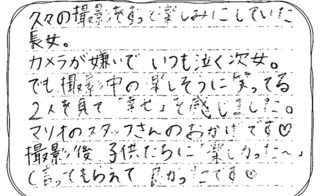 久々の撮影をずっと楽しみにしていた
長女。
カメラが嫌いでいつも泣く次女。
でも撮影中の楽しそうに笑ってる
2人を見て「幸せ」を感じました。
マリオのスタッフさんのおかげです♡
撮影後、子供たちに「楽しかった〜」
と言ってもらえて良かったです♡